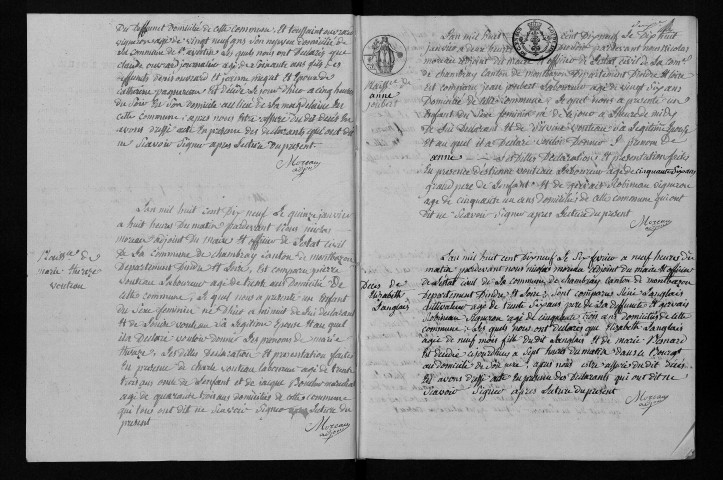 Du deffunt domicilié de cette commune, Et toussaint ouvrard
vigneron agé de vingt neuf ans son neveu domicilié de
la commune de St avertin Les quels nous ont Déclaré que
claude ouvrard journalier agé de soixante ans fils des
deffunts denis ouvrard et jeanne Epoux de
catherine pagueneau Est décédé Le jour D'hier a cinq heures
du Soir En Son domicile au lieu de La magdelaine
cette commune, apres nous Etre assuré du dit décès
avons Dressé acte En presence des declarants qui ont dit
ne Scavoir Signer apres Lecture Du present
Moreau
adjoint
Naissce de
marie thereze
vouteau
L'an mil huit cent Dix neuf Le quinze janvier
a huit heures Du matin pardevant nous nicolas
moreau adjoint du maire Et officier de L'etat civil
de La commune de chambray canton de montbazon
Departement D'indre et Loire, Est comparu pierre
vouteau Laboureur agé de trente ans Domicilié De
cette commune, Le quel nous a presenté un Enfant
du Sexe feminin né D'hier a minuit de lui Declarant
Et de Louise vouteau La Legitime Epouse Et au quel
il a Declaré vouloir donner Les prenoms de marie
thereze, Les dittes Declaration et presentation faites
En presence de charle vouteau Laboureur agé de trente
trois ans oncle de L'enfant Et de jacque marechal
agé de quarante trois ans domiciliés de cette commune
qui tous ont dit ne Scavoir Signer Lecture du
present
Moreau
adjoint
Naissce de
anne
joubert
L'an mil huit cent Dix neuf Le Dix huit
janvier a deux heures pardevant nous Nicolas
moreau adjoint du maire Et officier de L'etat civil de La come
de chambray Canton de montbazon Departement D'indre Et Loire
Est comparu jean joubert Laboureur agé de vingt Six ans
Domicilié De cette commune, Le quel nous a presenté un
Enfant du Sexe feminin né de ce jour a L'heure de midy
de lui Declarant Et de vouteau La Legitime Epouse
Et au quel il a Declaré vouloir Donner Le prenom De
anne Les dittes Declaration Et presentation faites
En presence d'Etienne vouteau Laboureur agé de cinquante Six ans
grand pere de L'enfant Et de gervais Robineau vigneron
agé de cinquante un ans domiciliés de cette commune qui ont
dit ne Scavoir Signer apres Lecture du present
Moreau
adjoint
Décès de
Elizabeth
Langlais
L'an mil huit cent Dix neuf Le Six fevrier a neuf heures du
matin pardevant nous nicolas moreau adjoint du maire Et officier
de L'etat civil de La commune de chambray Canton de montbazon
Departement D'indre Et Loire, Sont comparus René Langlais
cultivateur agé de trente Six ans pere de La deffunte Et gervais
Robineau vigneron agé de cinquante trois ans domiciliés de cette
commune Les quels nous ont declaré que Elizabeth Langlais
agée de neuf mois fille du dit Langlais Et de marie
Est décédée cejourd'huy a Sept heures du matin dans le Bourg
au domicile de Son pere, apres nous etre assuré du dit décès
Et avons dressé acte En presence des declarants qui ont dit ne
Scavoir Signer apres Lecture du present
Moreau
adjoint